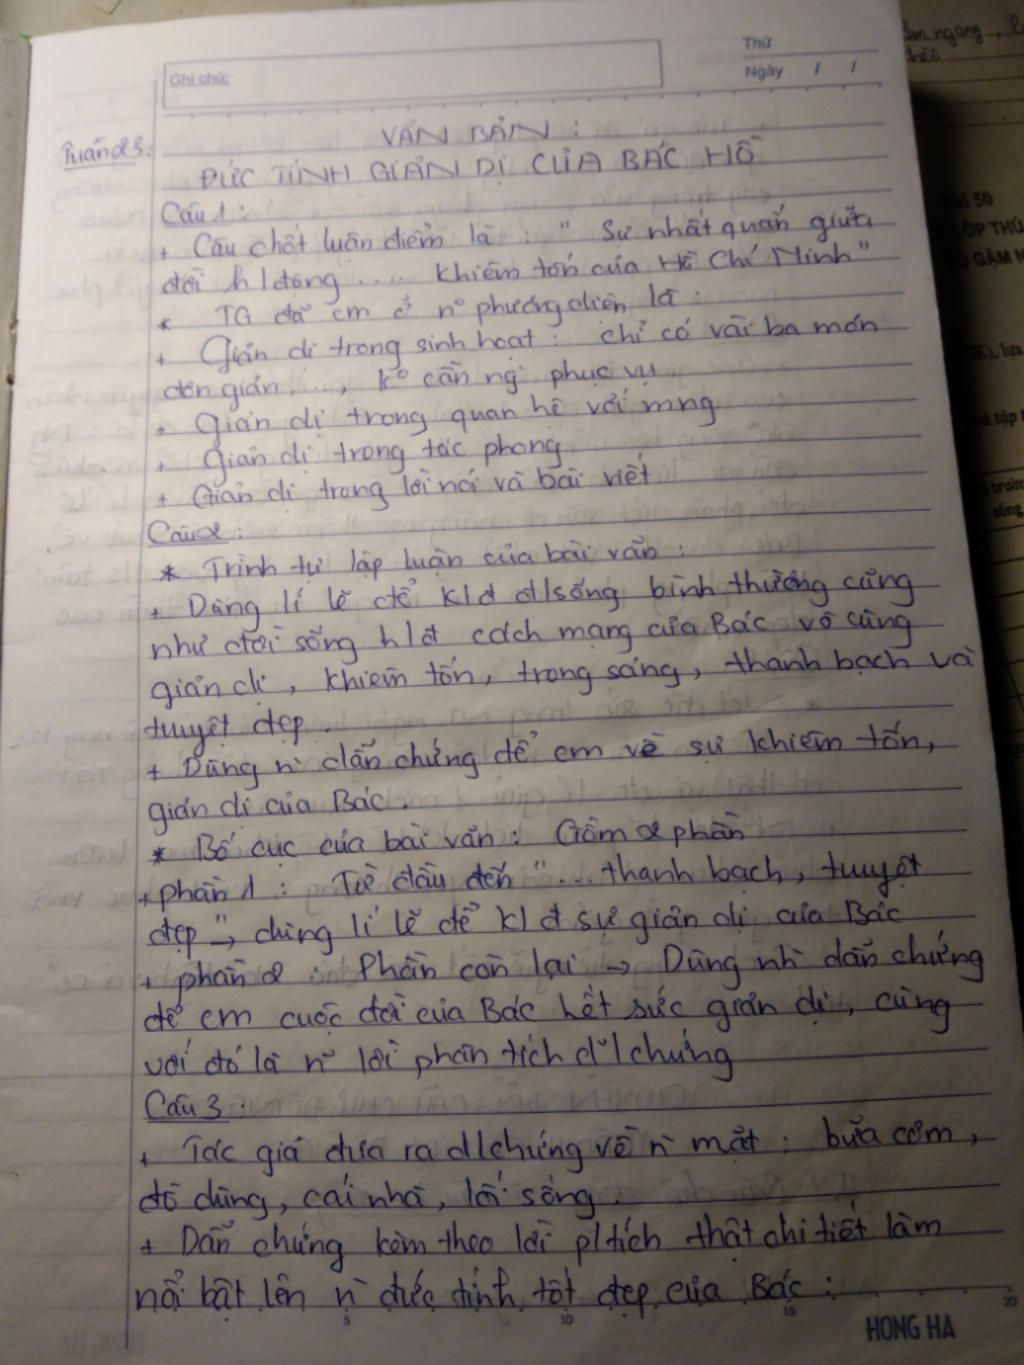 Thứ
Ghi chú:
Ngày / /
Tuần 23.
VĂN BẢN :
ĐỨC TÍNH GIẢN DỊ CỦA BÁC HỒ
Câu 1 :
+ Câu chốt luận điểm là : " Sự nhất quán giữa
đời h/động .... khiêm tốn của Hồ Chí Minh"
* TG đã cm ở n~ phương diện là :
+ Giản dị trong sinh hoạt : chỉ có vài ba món
đơn giản, ..., ko cần ng phục vụ
+ Giản dị trong quan hệ với mng
+ Giản dị trong tác phong
+ Giản dị trong lời nói và bài viết
Câu 2 :
* Trình tự lập luận của bài văn :
+ Dùng lí lẽ để k/đ đ/sống bình thường cũng
như đời sống h/đ cách mạng của Bác vô cùng
giản dị, khiêm tốn, trong sáng, thanh bạch và
tuyệt đẹp.
+ Dùng n~ dẫn chứng để cm về sự khiêm tốn,
giản dị của Bác.
* Bố cục của bài văn : Gồm 2 phần
+ phần 1 : Từ đầu đến "... thanh bạch, tuyệt
đẹp" → dùng lí lẽ để k/đ sự giản dị của Bác
+ phần 2 : Phần còn lại → Dùng nh~ dẫn chứng
để cm cuộc đời của Bác hết sức giản dị, cùng
với đó là n~ lời phân tích d/chứng
Câu 3 :
+ Tác giả đưa ra d/chứng về n~ mặt : bữa cơm,
đồ dùng, cái nhà, lối sống.
+ Dẫn chứng kèm theo lời p/tích thật chi tiết làm
nổi bật lên n~ đức tính tốt đẹp của Bác :
5 10 15 20
HONG HA
ngang
Bài 50
LỚP THÚ
GẶM N
lưa
và tập t
trườn
sống